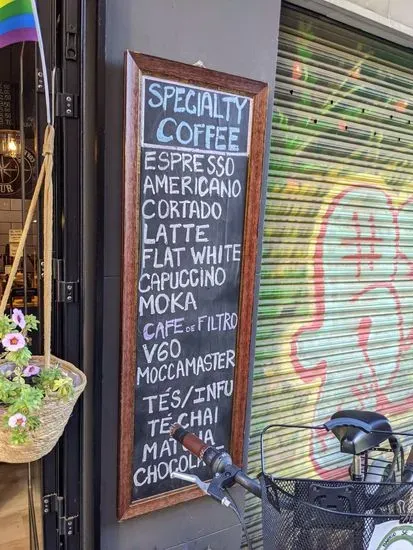 SPECIALTY
COFFEE
ESPRESSO
AMERICANO
CORTADO
LATTE
FLAT WHITE
CAPUCCINO
MOKA
CAFE DE FILTRO
V60
MOCCAMASTER
TÉS/INFU
TÉ CHAI